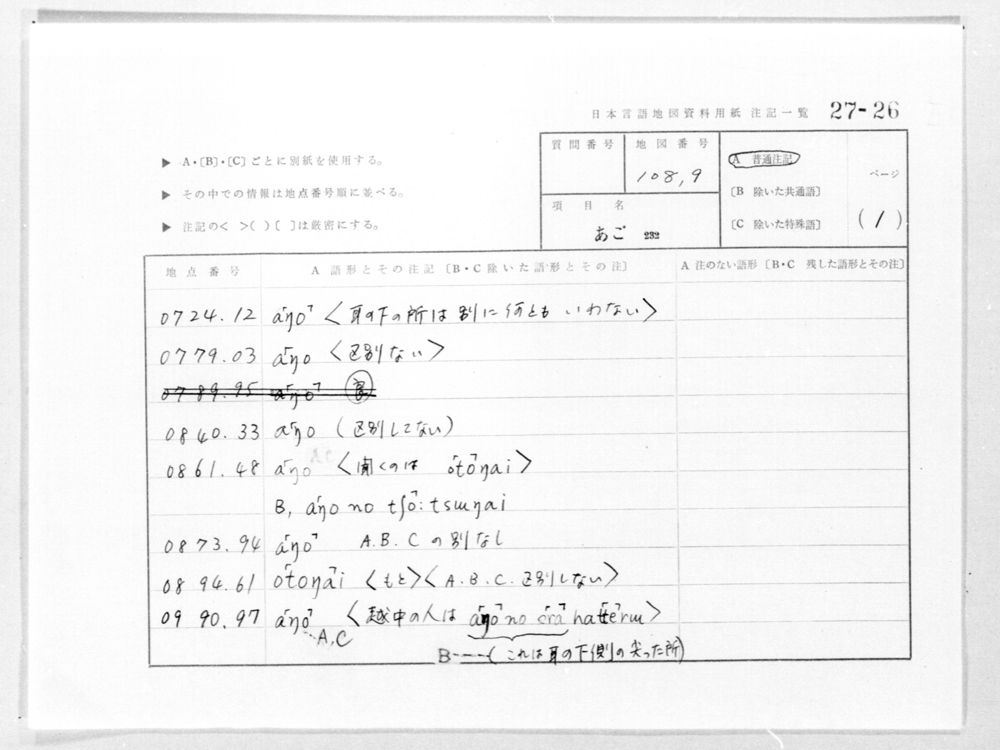 日本言語地図資料用紙 注記一覧 27-26
▶ A・〔B〕・〔C〕ごとに別紙を使用する。
▶ その中での情報は地点番号順に並べる。
▶ 注記の< >( )〔 〕は厳密にする。
質問番号
地図番号
108,9
項目名
あご 232
A 普通注記
〔B 除いた共通語〕
〔C 除いた特殊語〕
ページ
(1)
地点番号 A 語形とその注記〔B・C除いた語形とその注〕 A 注のない語形〔B・C 残した語形とその注〕
0724.12 a｢ŋo｣ 〈耳の下の所は別に何ともいわない〉
0779.03 a｢ŋo 〈区別ない〉
0789.95 a｢ŋo｣
0840.33 a｢ŋo (区別してない)
0861.48 a｢ŋo 〈開くのは o｢to｣ŋai〉
B, a｢ŋo no tʃo｣:tsɯŋai
0873.94 a｢ŋo｣ A.B.Cの別なし
0894.61 o｢toŋa｣i 〈もと〉〈A.B.C.区別しない〉
0990.97 a｢ŋo｣ 〈越中の人は a｢ŋo｣ no ｢era｣ ha｢tte｣rɯ〉
A,C
B----(これは耳の下側の尖った所)